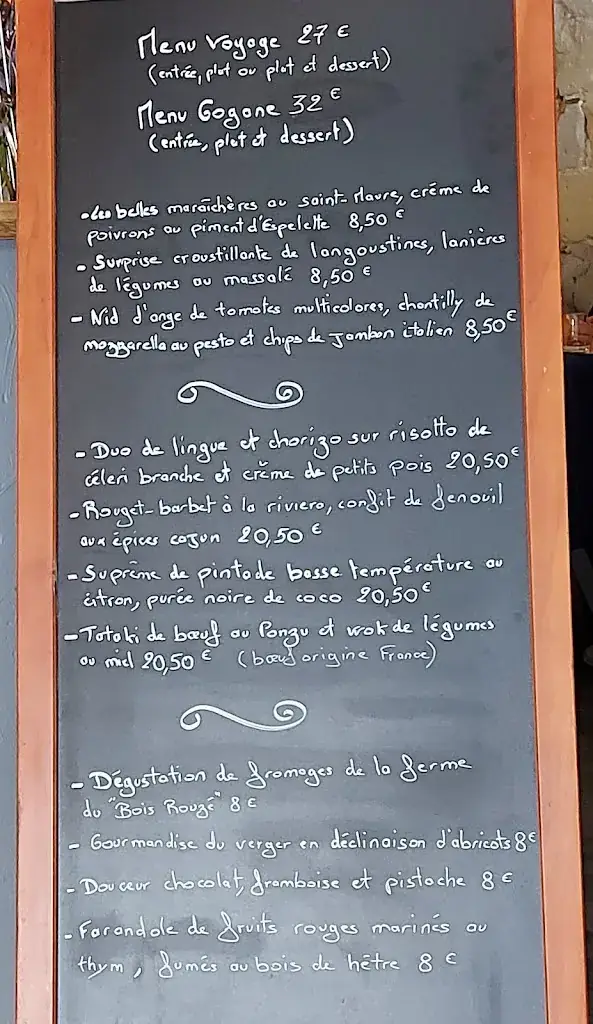 Menu Voyage 27 €
(entrée, plat ou plat et dessert)
Menu Gogane 32 €
(entrée, plat et dessert)
- Les belles maraîchères au saint-Maure, crème de
poivrons au piment d'Espelette 8,50 €
- Surprise croustillante de langoustines, lanières
de légumes au massalé 8,50 €
- Nid d'ange de tomates multicolores, chantilly de
mozzarella au pesto et chips de Jambon italien 8,50 €
- Duo de lingue et chorizo sur risotto de
céleri branche et crème de petits pois 20,50 €
- Rouget-barbet à la riviera, confit de fenouil
aux épices cajun 20,50 €
- Suprême de pintade basse température au
citron, purée noire de coco 20,50 €
- Tataki de bœuf au Ponzu et wok de légumes
au miel 20,50 € (bœuf origine France)
- Dégustation de fromages de la ferme
du "Bois Rouzé" 8 €
- Gourmandise du verger en déclinaison d'abricots 8 €
- Douceur chocolat, framboise et pistache 8 €
- Farandole de fruits rouges marinés au
thym, fumés au bois de hêtre 8 €